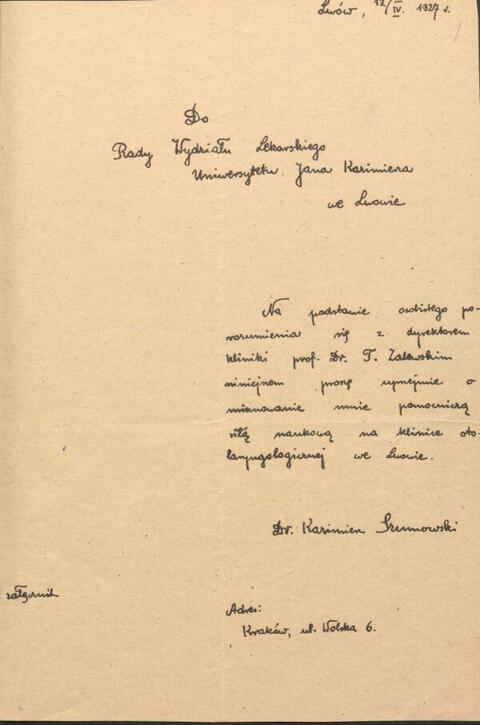 Lwów, 12/IV. 1927 r.
1
Do
Rady Wydziału Lekarskiego
Uniwersytetu Jana Kazimierza
we Lwowie
Na podstawie osobistego po-
rozumienia się z dyrektorem
kliniki prof. Dr. T. Zalewskim
niniejszem proszę uprzejmie o
mianowanie mnie pomocniczą
siłą naukową na klinice oto-
laryngologicznej we Lwowie.
Dr. Kazimierz Szumowski
Adres:
Kraków, ul. Wolska 6.